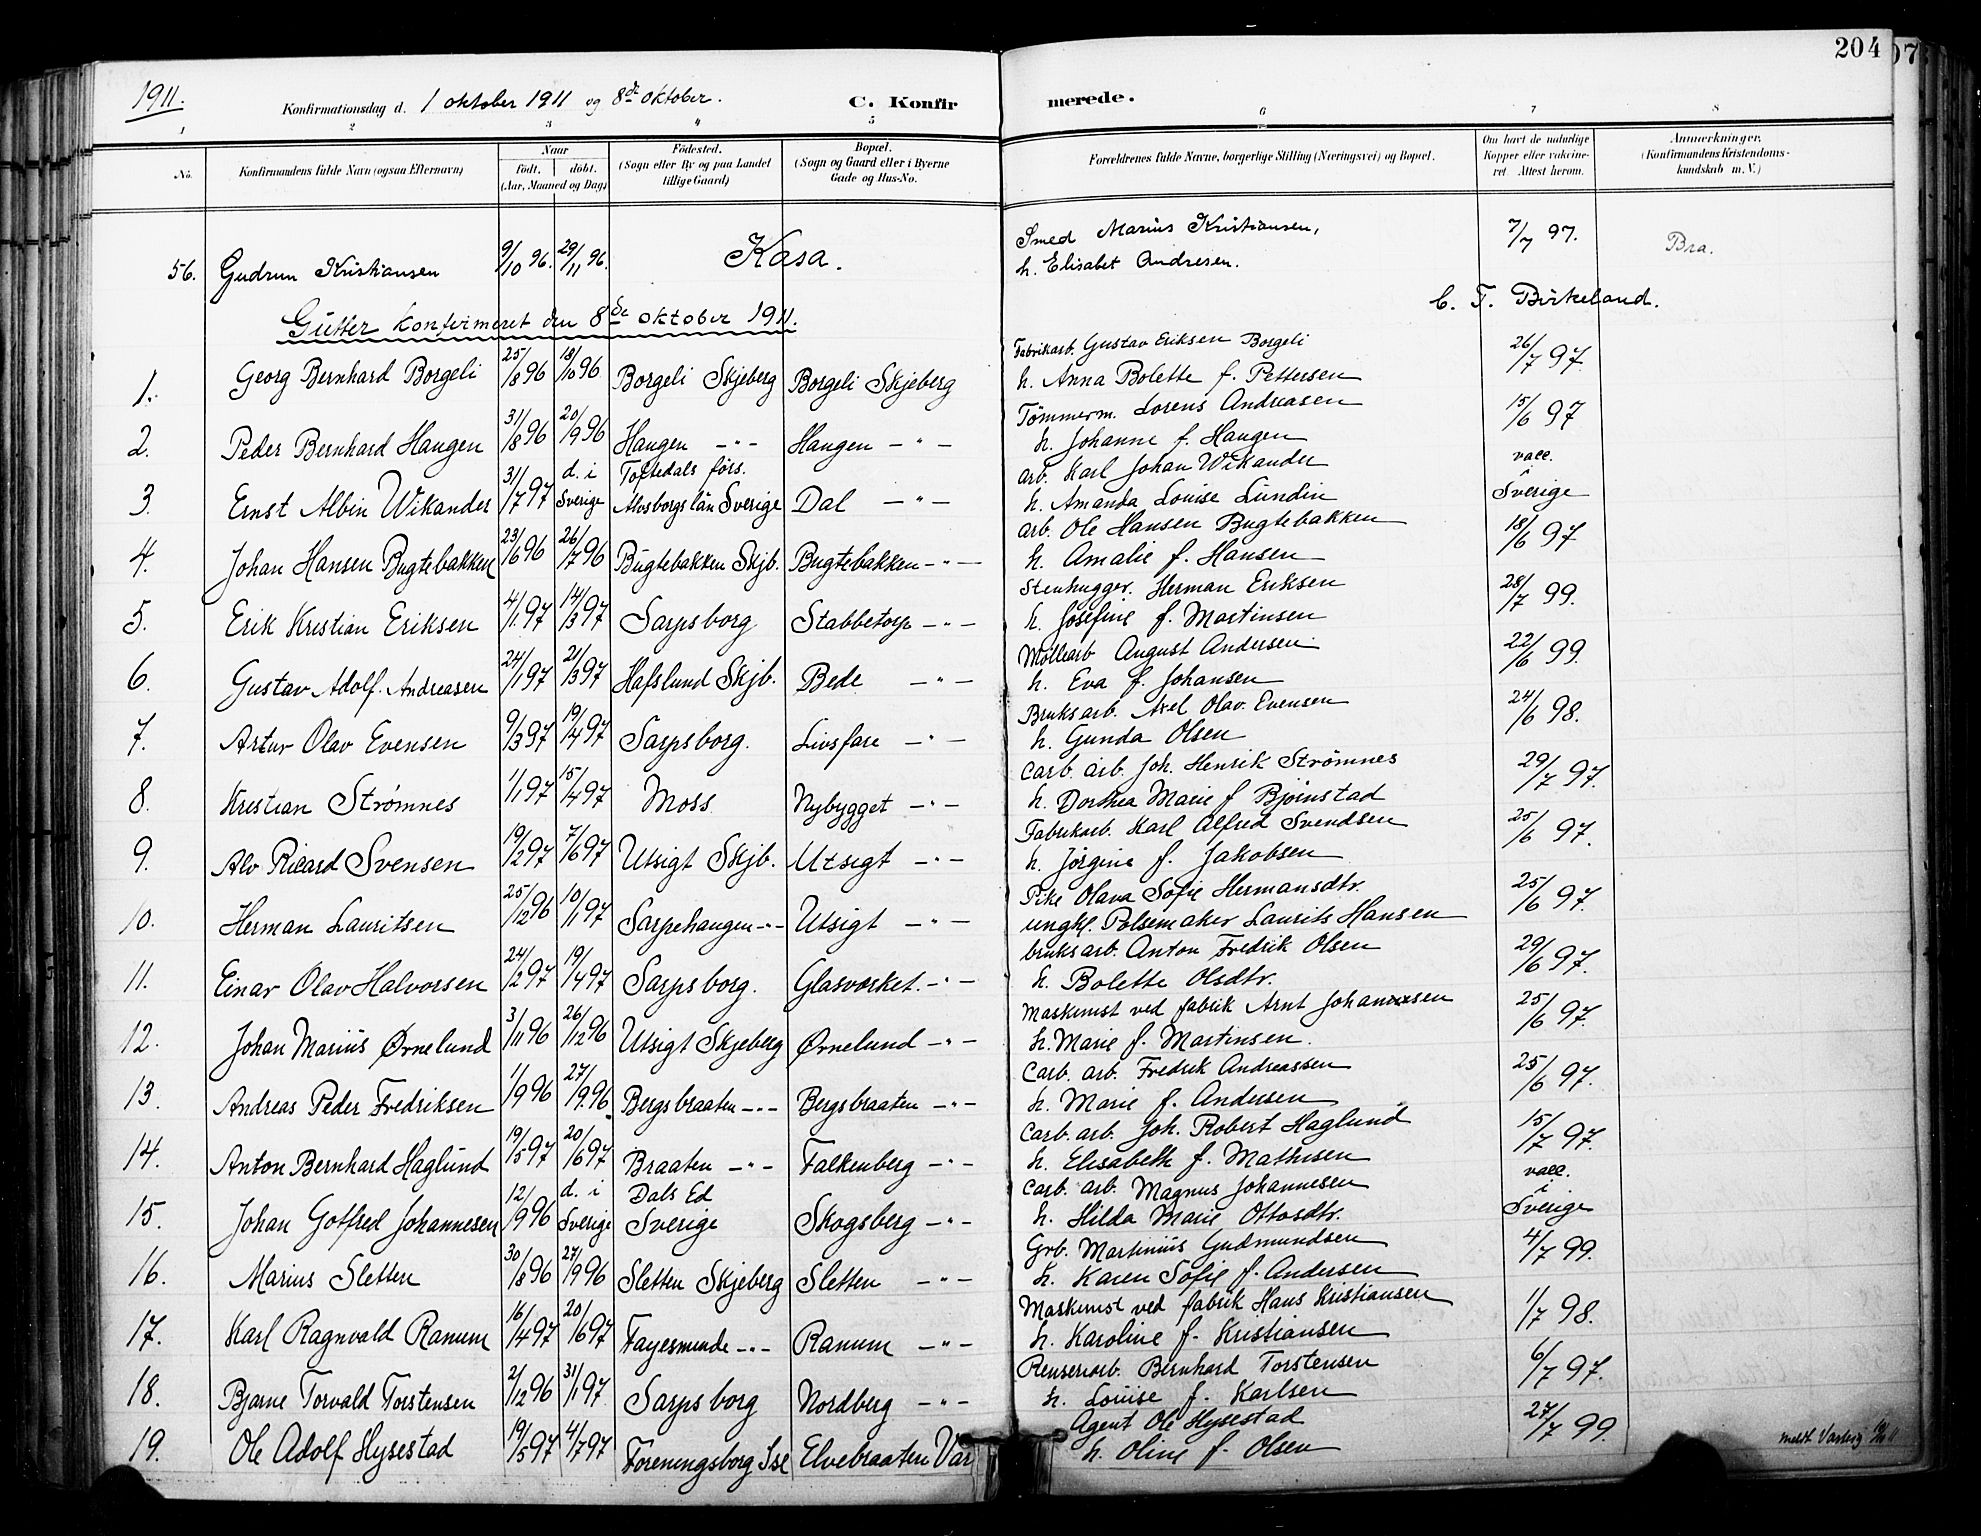 204
1911.
Konfirmationsdag d. 1 oktober 1911 og 8de oktober.
C. Konfirmerede.
1 2 3 4 5 6 7 8
No.
Konfirmandens fulde Navn (ogsaa Efternavn)
Naar
født. døbt.
(Aar, Maaned og Dag)
Fødested.
(Sogn eller By og paa Landet
tillige Gaard)
Bopæl.
(Sogn og Gaard eller i Byerne
Gade og Hus-No.
Forældrenes fulde Navne, borgerlige Stilling (Næringsvei) og Bopæl.
Om havt de naturlige
Kopper eller vakcine-
ret. Attest herom.
Anmærkninger,
(Konfirmandens Kristendoms-
kundskab m. V.)
56. Gudrun Kristiansen 9/10 96. 29/11 96. Kasa. Smed Marius Kristiansen, 7/7 97. Bra.
h. Elisabet Andresen.
C. F. Birkeland.
Gutter konfirmeret den 8de oktober 1911.
1. Georg Bernhard Borgeli 25/8 96 18/10 96 Borgeli Skjeberg Borgeli Skjeberg Fabrikarb. Gustav Eriksen Borgeli 26/7 97.
h. Anna Bolette f. Pettersen
2. Peder Bernhard Haugen 31/8 96 20/9 96 Haugen -"- Haugen -"- Tömmerm. Lorens Andreasen 15/6 97
h. Johanne f. Haugen
3. Ernst Albin Wikander 31/7 97 d. i Sverige Toftedals förs. Alvsborgs län Sverige Dal -"- arb. Karl Johan Wikander vacc. i Sverige
h. Amanda Louise Lundin
4. Johan Hansen Bugtebakken 23/6 96 26/7 96 Bugtebakken Skjb. Bugtebakken -"- arb. Ole Hansen Bugtebakken 18/6 97
h. Amalie f. Hansen
5. Erik Kristian Eriksen 4/1 97 14/3 97 Sarpsborg Stabbetorp -"- Stenhugger. Herman Eriksen 28/7 99.
h. Josefine f. Martinsen
6. Gustav Adolf. Andreasen 24/1 97 21/3 97 Hafslund Skjb. Bede -"- Möllearb August Andersen 22/6 99.
h. Eva f. Johansen
7. Artur Olav Evensen 9/3 97 19/4 97 Sarpsborg. Livsfare -"- Bruksarb. Axel Olav. Evensen 24/6 98.
h. Gunda Olsen
8. Kristian Strømnes 1/1 97 15/4 97 Moss Nybygget -"- Carb. arb. Joh. Henrik Strømnes 29/7 97.
h. Dorthea Marie f Bjørnstad
9. Alv Ricard Svensen 19/2 97 7/6 97 Utsigt Skjb. Utsigt -"- Fabrikarb. Karl Alfred Svendsen 25/6 97.
h. Jørgine f. Jakobsen
10. Herman Lauritsen 25/12 96 10/1 97 Sarpehaugen -"- Utsigt -"- Pike Olava Sofie Hermansdtr. 25/6 97.
ungkl. Pølsemaker Laurits Hansen
11. Einar Olav Halvorsen 24/2 97 19/4 97 Sarpsborg. Glasværket. -"- bruksarb. Anton Fredrik Olsen 29/6 97.
h. Bolette Olsdtr.
12. Johan Marius Ørnelund 3/11 96 26/12 96 Utsigt Skjeberg Ørnelund -"- Maskinist ved fabrik Arnt Johannesen 25/6 97.
h. Marie f. Martinsen.
13. Andreas Peder Fredriksen 1/9 96 27/9 96 Bergsbraaten -"- Bergsbraaten -"- Carb. arb. Fredrik Andreassen 25/6 97.
h. Marie f. Andersen
14. Anton Bernhard Haglund 19/5 97 20/6 97 Braaten -"- Falkenberg -"- Carb. arb. Joh. Robert Haglund 15/7 97.
h. Elisabeth f. Mathisen
15. Johan Gotfred Johannesen 12/9 96 d. i Sverige Dals Ed Sverige Skogsberg -"- Carb. arb. Magnus Johannesen vacc. i Sverige
h. Hilda Marie Ottosdtr.
16. Marius Sletten 30/8 96 27/9 96 Sletten Skjeberg Sletten -"- Grb. Martinius Gudmundsen 4/7 99.
h. Karen Sofie f. Andersen
17. Karl Ragnvald Ranum 16/4 97 20/6 97 Fayesminde -"- Ranum -"- Maskinist ved fabrik Hans Kristiansen 1/7 98.
h. Karoline f. Kristiansen
18. Bjarne Torvald Torstensen 2/12 96 31/1 97 Sarpsborg Nordberg -"- Renseriarb. Bernhard Torstensen 6/7 97.
h. Louise f. Karlsen
19. Ole Adolf Hysestad 19/5 97 4/7 97 Foreningsborg Ise Elvebraaten Var Agent Ole Hysestad 27/7 99. meldt Varteig
h. Oline f. Olsen